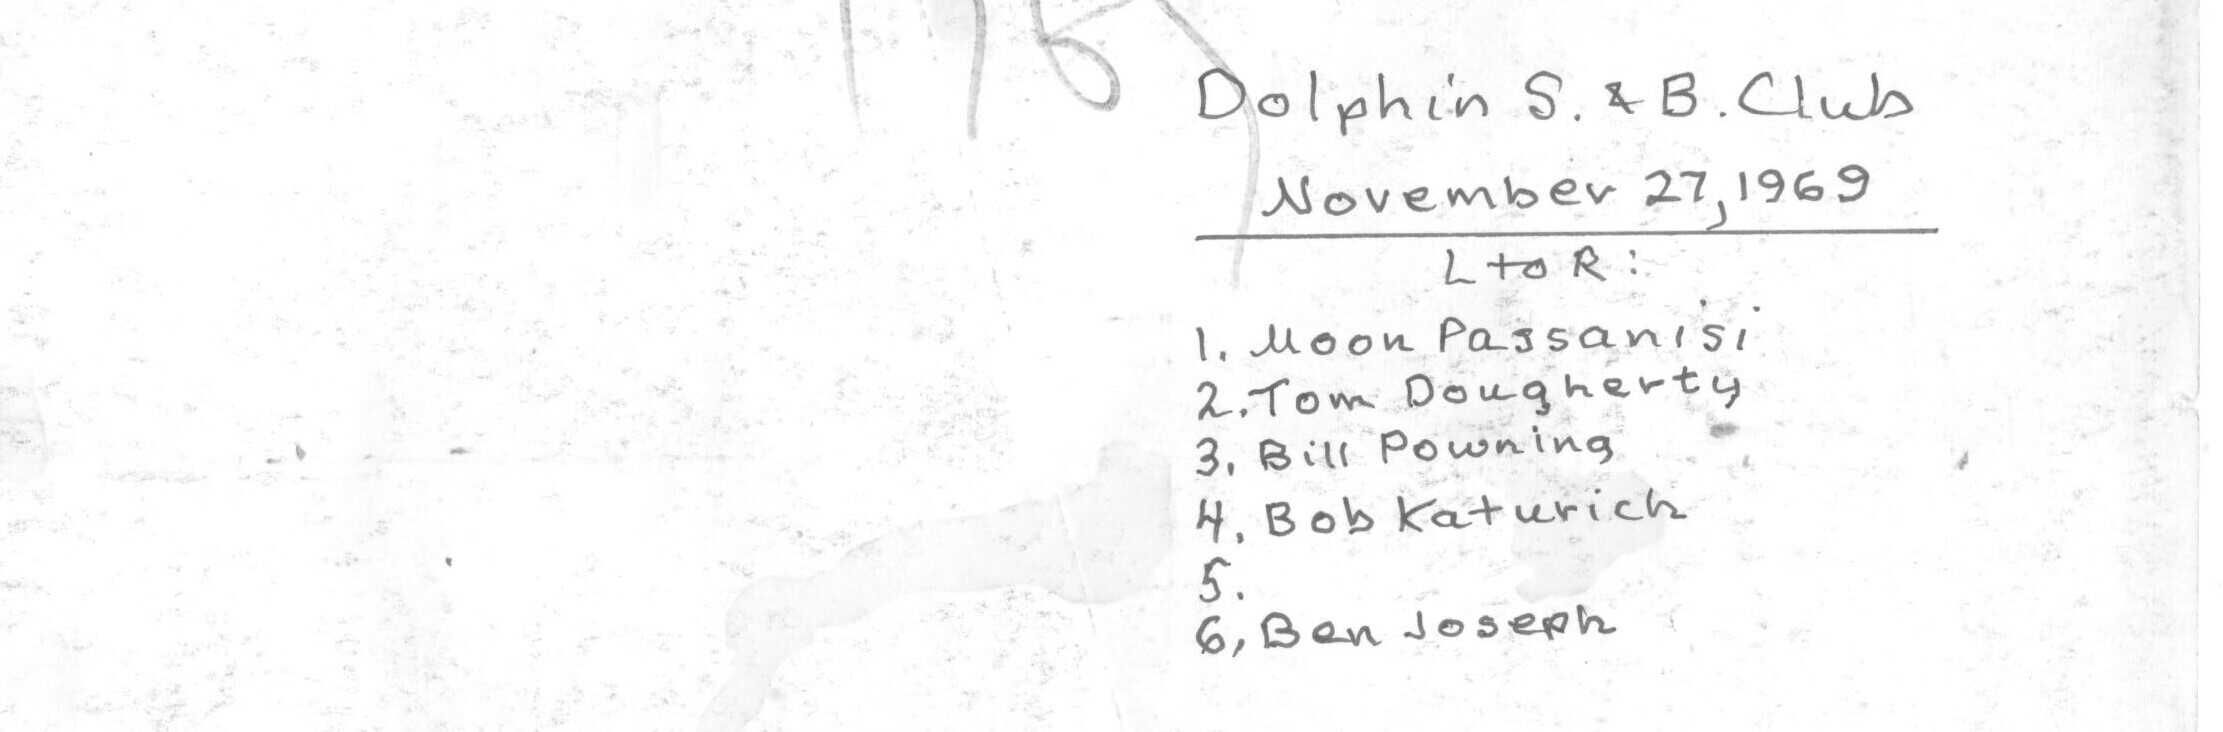 1969
Dolphin S. & B. Club
November 27, 1969
L to R:
1. Moon Passanisi
2. Tom Dougherty
3. Bill Powning
4. Bob Katurich
5.
6, Ben Joseph